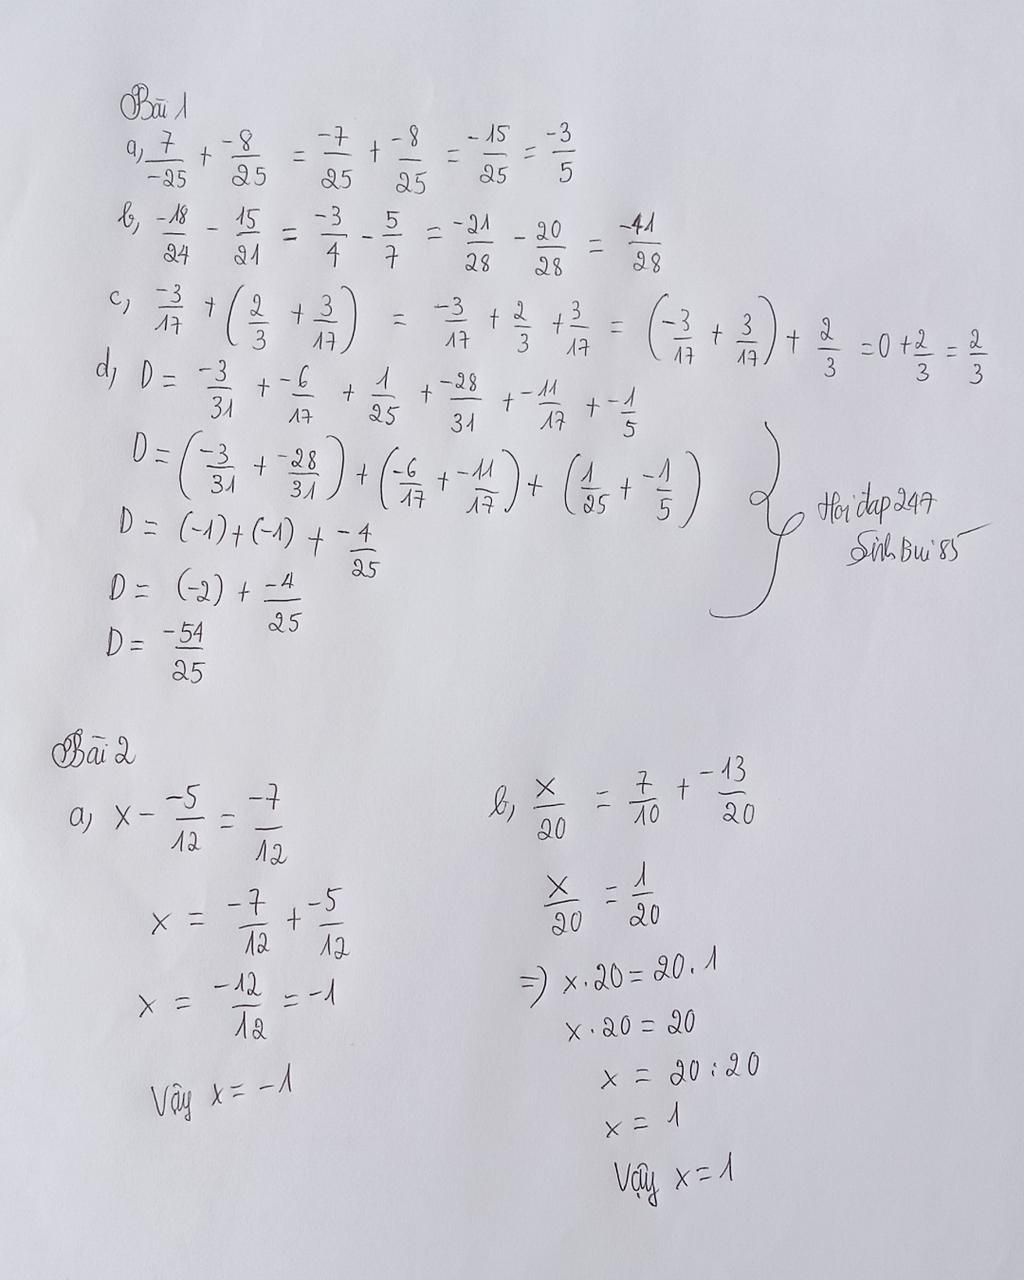 Bài 1
a, 7/-25 + -8/25 = -7/25 + -8/25 = -15/25 = -3/5
b, -18/24 - 15/21 = -3/4 - 5/7 = -21/28 - 20/28 = -41/28
c, -3/17 + (2/3 + 3/17) = -3/17 + 2/3 + 3/17 = (-3/17 + 3/17) + 2/3 = 0 + 2/3 = 2/3
d, D = -3/31 + -6/17 + 1/25 + -28/31 + -11/17 + -1/5
D = (-3/31 + -28/31) + (-6/17 + -11/17) + (1/25 + -1/5)
D = (-1) + (-1) + -4/25
D = (-2) + -4/25
D = -54/25
Hoidap247
Sinh Bui 85
Bài 2
a, x - -5/12 = -7/12
x = -7/12 + -5/12
x = -12/12 = -1
Vậy x = -1
b, x/20 = 7/10 + -13/20
x/20 = 1/20
=) x.20 = 20.1
x.20 = 20
x = 20:20
x = 1
Vậy x = 1